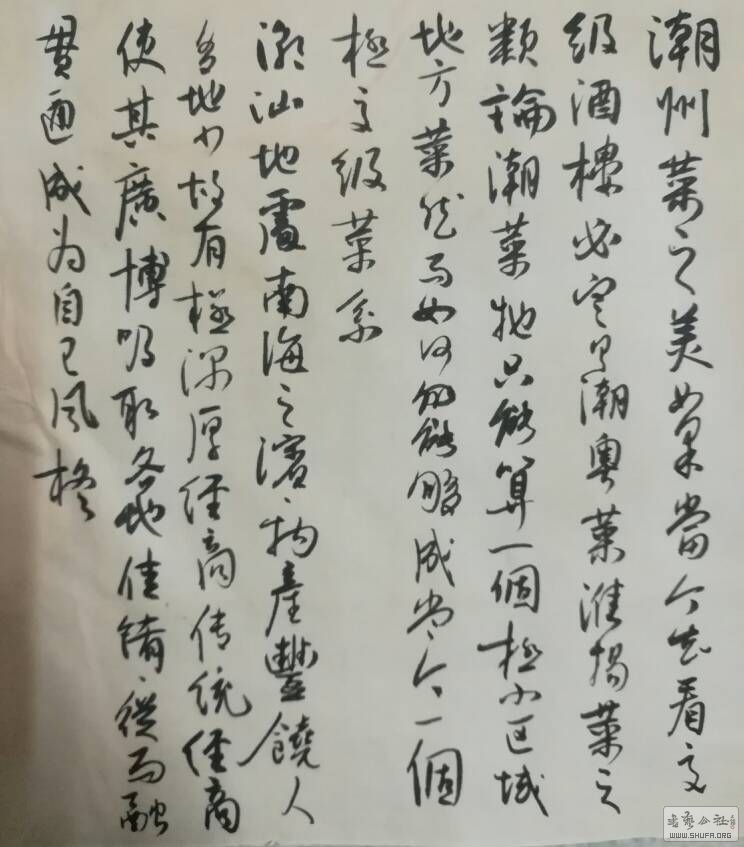 潮州菜之美如果當今去看高
级酒樓必定是潮粤菜淮揚菜之
類論潮菜牠只能算一個極小区域
地方菜然而如何能夠成当今一個
極高级菜系
潮汕地處南海之濱物產豐饒人
多地少故有極深厚经商传统经商
使其廣博吸取各地佳餚從而融
貫通成为自己风格
书艺公社
WWW.SHUFA.ORG